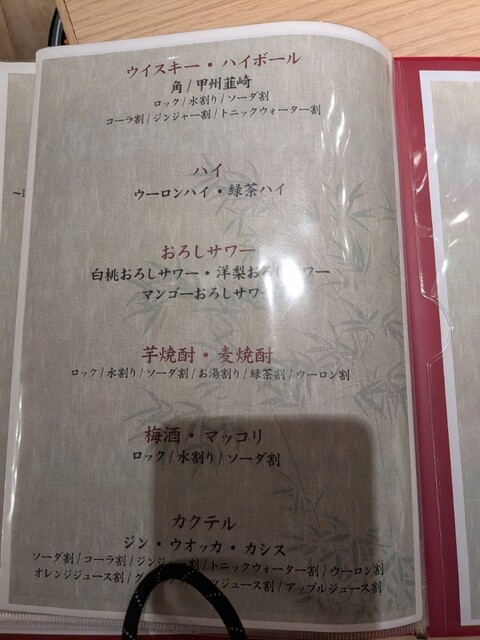 ウイスキー・ハイボール
角/甲州韮崎
ロック/水割り/ソーダ割
コーラ割/ジンジャー割/トニックウォーター割
ハイ
ウーロンハイ・緑茶ハイ
おろしサワー
白桃おろしサワー・洋梨おろしサワー
マンゴーおろしサワー
芋焼酎・麦焼酎
ロック/水割り/ソーダ割/お湯割り/緑茶割/ウーロン割
梅酒・マッコリ
ロック/水割り/ソーダ割
カクテル
ジン・ウオッカ・カシス
ソーダ割/コーラ割/ジンジャー割/トニックウォーター割/ウーロン割
オレンジジュース割/ジュース割/アップルジュース割